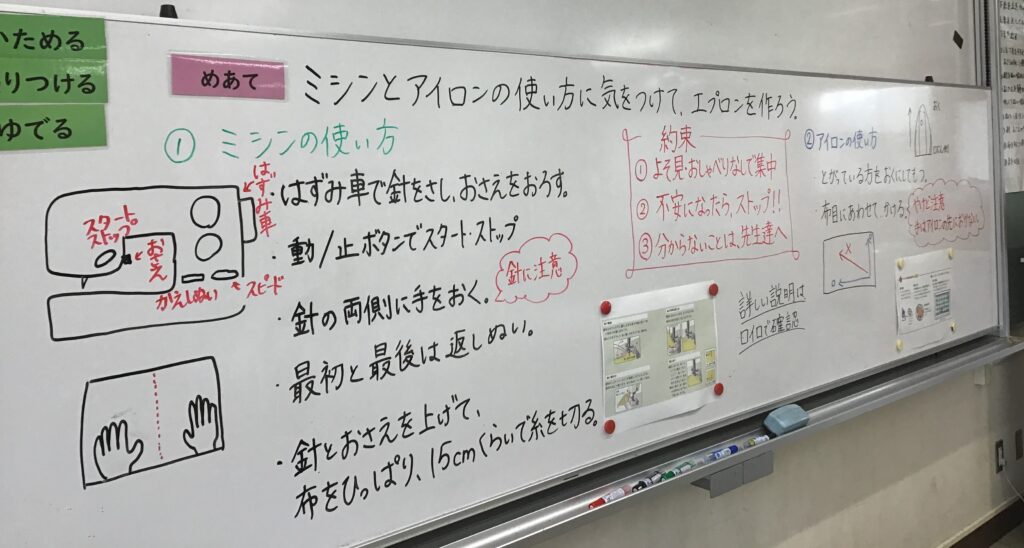 いためる
りつける
ゆでる
めあて
ミシンとアイロンの使い方に気をつけて、エプロンを作ろう。
① ミシンの使い方
はずみ車
スタート
ストップ
おさえ
かえしぬい
スピード
・はずみ車で針をさし、おさえをおろす。
・動/止ボタンでスタート・ストップ
・針の両側に手をおく。
針に注意
・最初と最後は返しぬい。
・針とおさえを上げて、
布をひっぱり、15cmくらいで糸を切る。
約束
① よそ見・おしゃべりなしで集中
② 不安になったら、ストップ!!
③ 分からないことは、先生達へ
詳しい説明は
ロイロで確認
② アイロンの使い方
・とがっている方をおくにしてもつ。
・布目にあわせて、かける。
やけど注意
手はアイロンの先におかない
おく